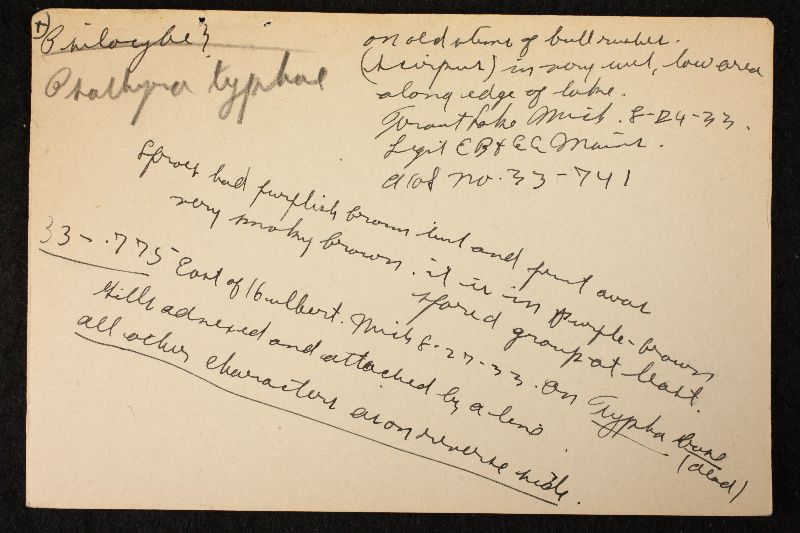 Psilocybe?
Psathyra typhae
on old stems of bullrushes.
(Scirpus) in very wet, low area
along edge of lake.
Lake Mich. 8-24-33.
Legit E.B. & E.E. Mains.
No. 33-741
Spores had purplish brown tint and print was
very smoky brown. it is in purple-brown
spored group at least.
33-.775 East of Hulbert. Mich 8-27-33. On Typha base
(dead)
Gills adnexed and attached by a line
all other characters as on reverse side.